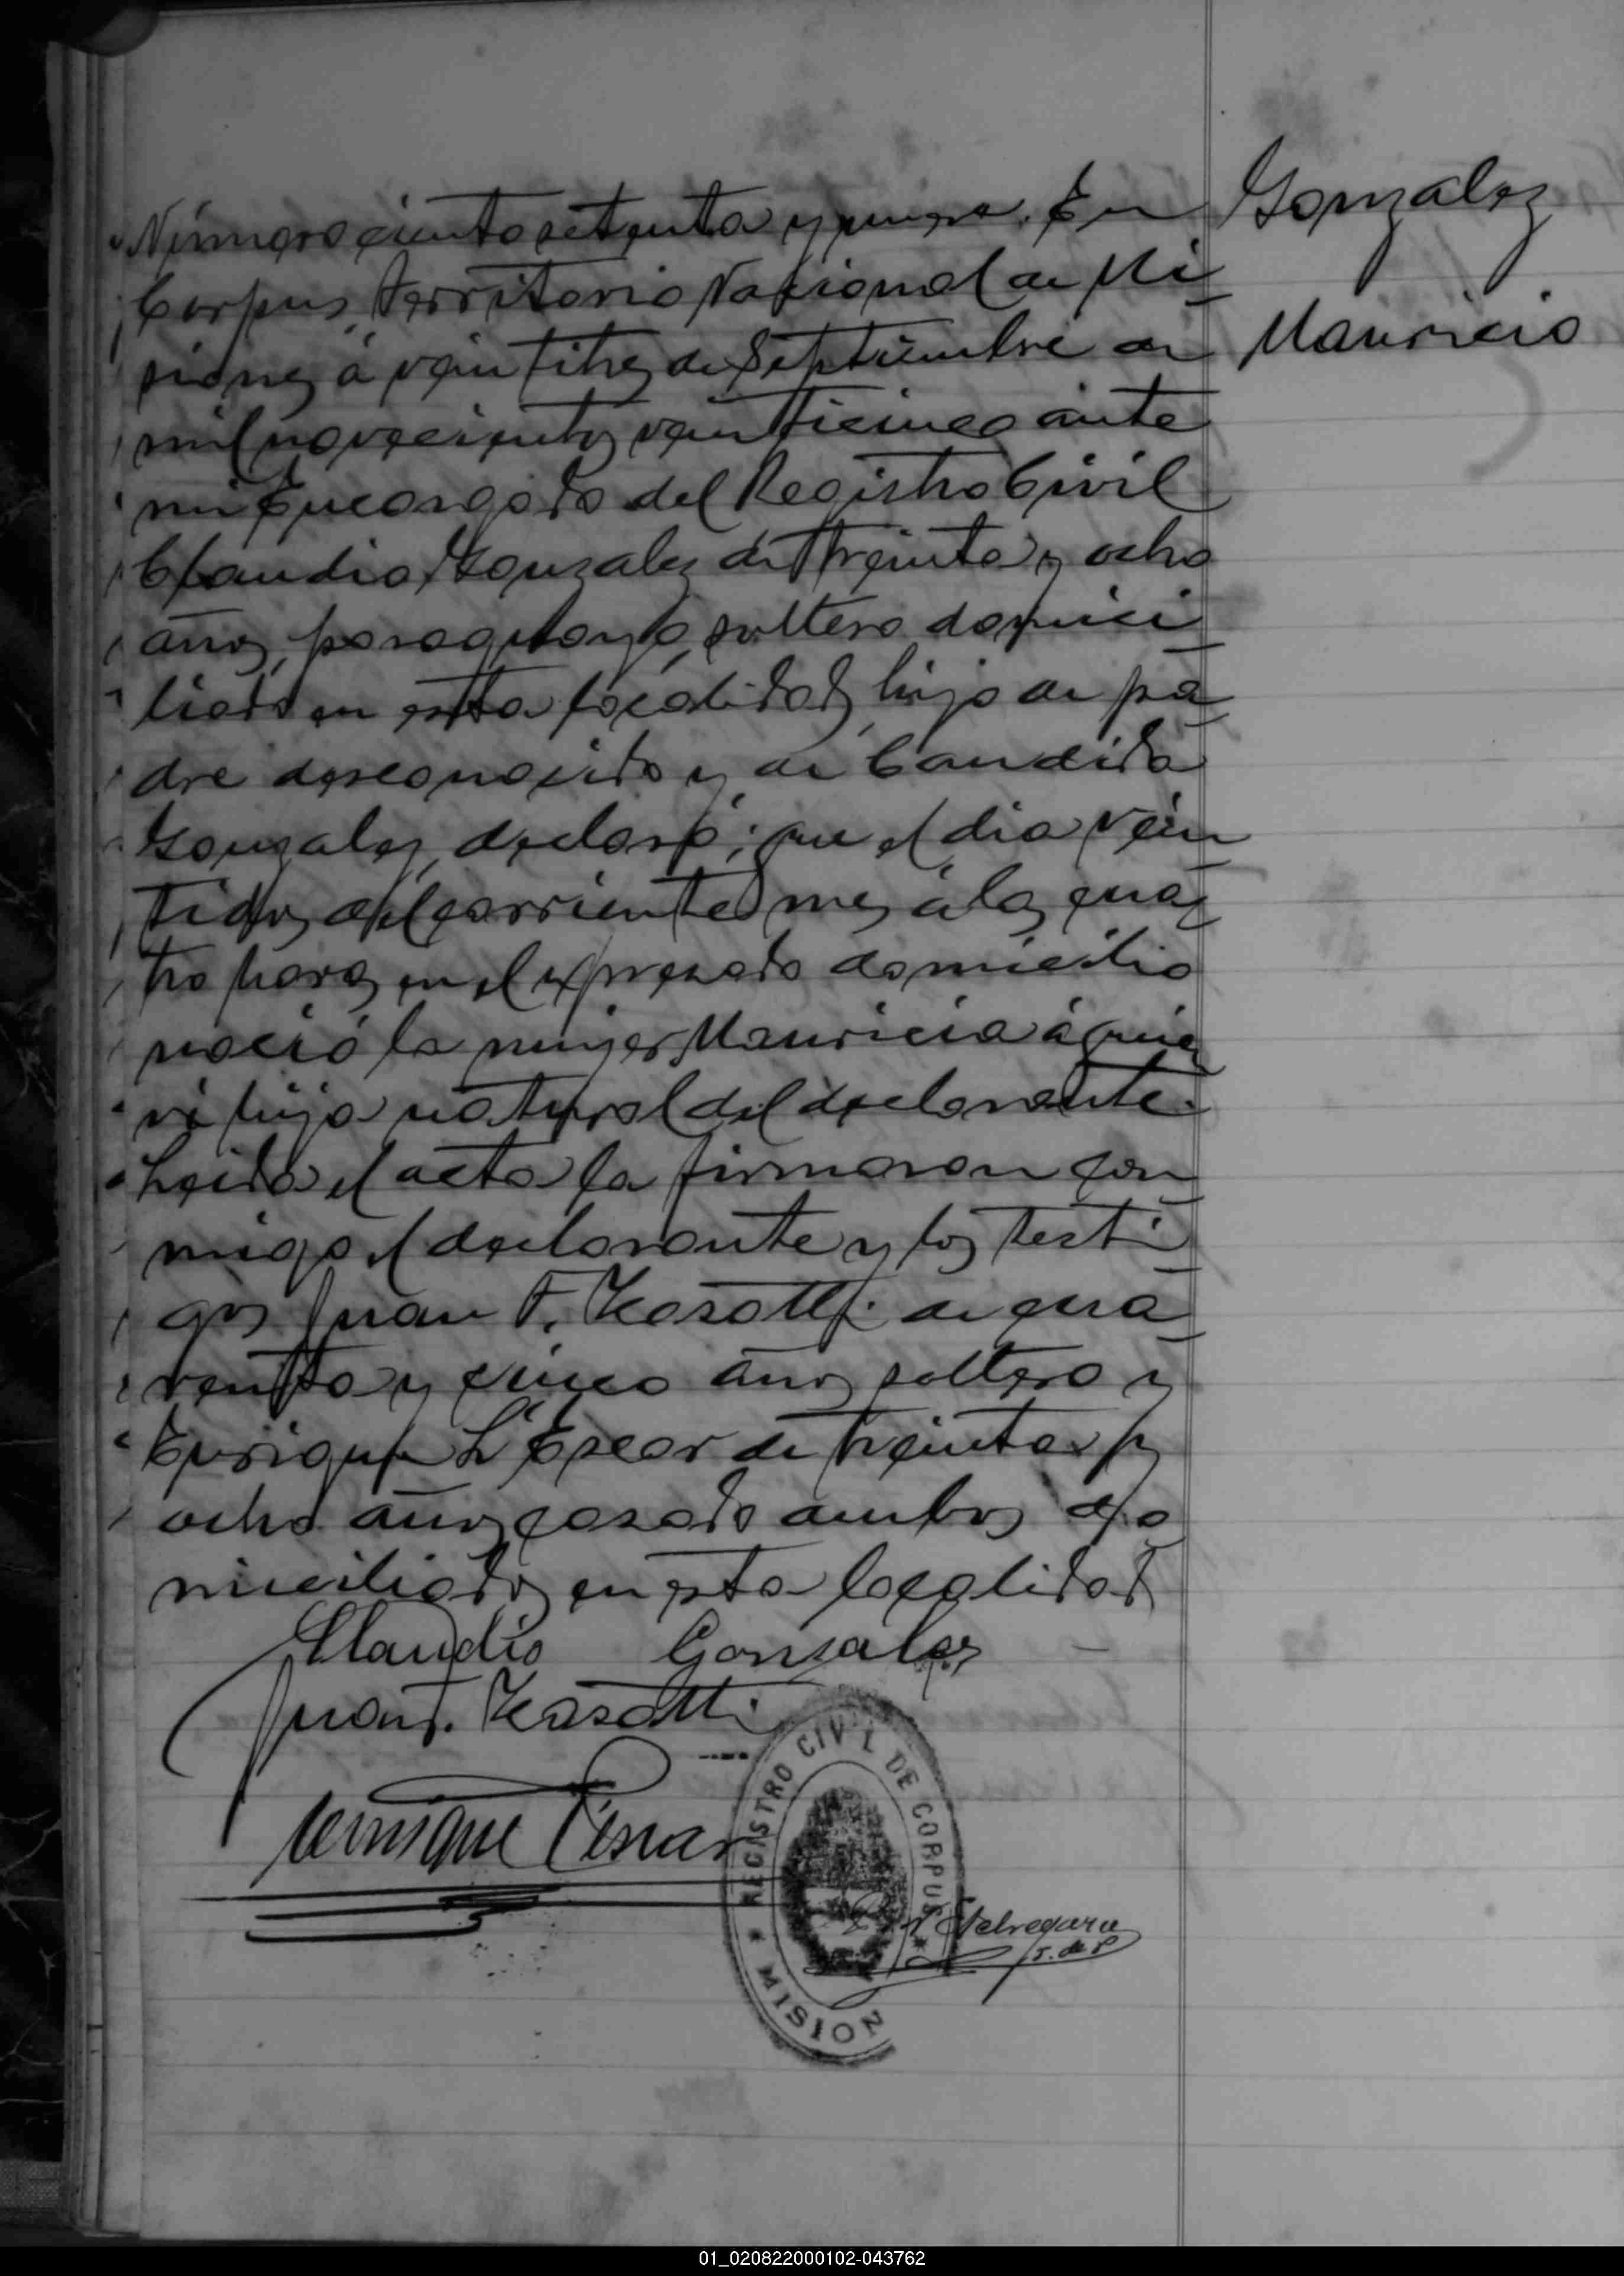 Número ciento setenta y nueve. En
Corpus, Territorio Nacional de Mi
siones, á veintitres de Septiembre de
mil novecientos veinticinco ante
mi Encargado del Registro Civil
Claudio Gonzalez de treinta y ocho
años, paraguayo, soltero domici
liado en esta localidad, hijo de pa
dre desconocido y de Candida
Gonzalez, declaró: que el dia vein
tidos del corriente mes á las cua
tro horas en el expresado domicilio
nació la mujer Mauricia á quien
vi hija natural del declarante.
Leida el acta la firmaron con
migo el declarante y los testi
gos Juan F. de cua
renta y cinco años soltero y
Enrique de treinta y
ocho años casado ambos do
miciliados en esta localidad
Claudio Gonzalez
Juan F.
Enrique
Gonzalez
Mauricia
REGISTRO CIVIL DE CORPUS
MISION
J. de P
01_020822000102-043762